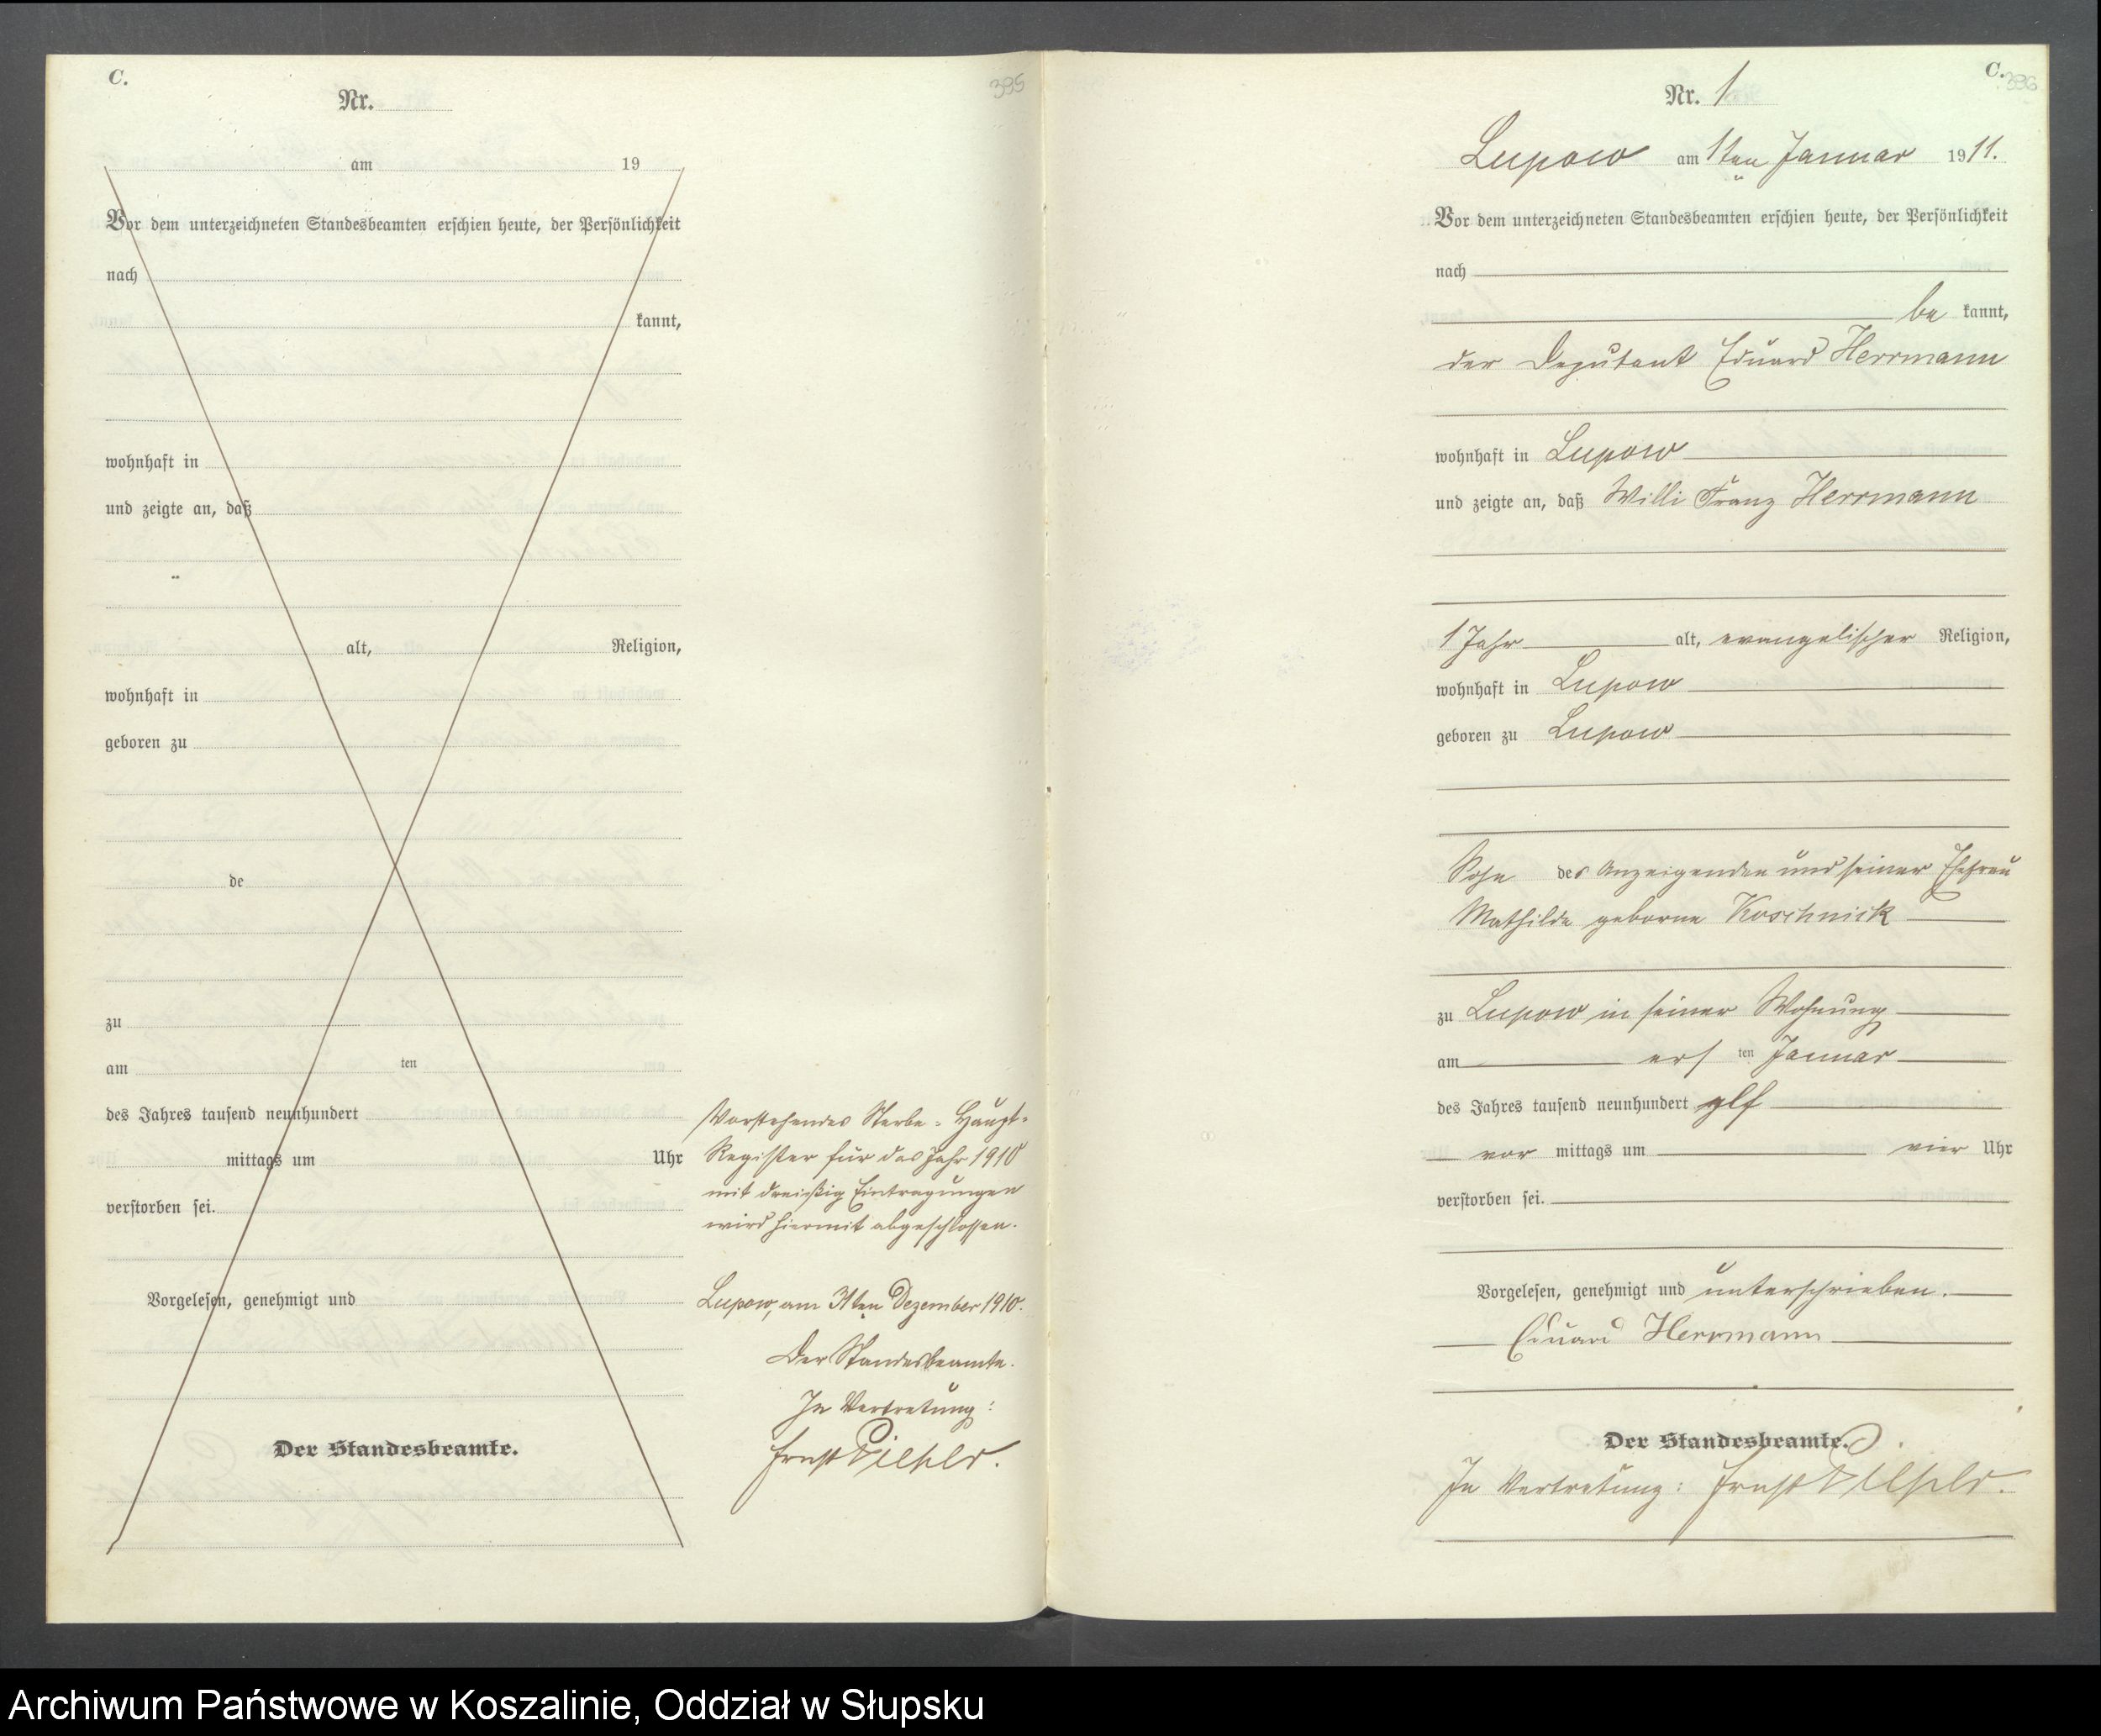 C.
395
Nr.
am 19
Vor dem unterzeichneten Standesbeamten erschien heute, der Persönlichkeit
nach
kannt,
wohnhaft in
und zeigte an, daß
alt, Religion,
wohnhaft in
geboren zu
de
zu
am ten
des Jahres tausend neunhundert
mittags um Uhr
verstorben sei.
Vorgelesen, genehmigt und
Der Standesbeamte.
Vorstehendes Sterbe-Haupt-
Register für das Jahr 1910
mit dreißig Eintragungen
wird hiermit abgeschlossen.
Lupow, am 31ten Dezember 1910.
Der Standesbeamte.
In Vertretung:
Ernst
C.
396
Nr. 1
Lupow am 1ten Januar 1911.
Vor dem unterzeichneten Standesbeamten erschien heute, der Persönlichkeit
nach
be kannt,
der Deputant Eduard Herrmann
wohnhaft in Lupow
und zeigte an, daß Willi Franz Herrmann
1 Jahr alt, evangelischer Religion,
wohnhaft in Lupow
geboren zu Lupow
Sohn des Anzeigenden und seiner Ehefrau
Mathilde geborne Koschnick
zu Lupow in seiner Wohnung
am ers ten Januar
des Jahres tausend neunhundert elf
vor mittags um vier Uhr
verstorben sei.
Vorgelesen, genehmigt und unterschrieben.
Eduard Herrmann
Der Standesbeamte.
In Vertretung: Ernst
Archiwum Państwowe w Koszalinie, Oddział w Słupsku